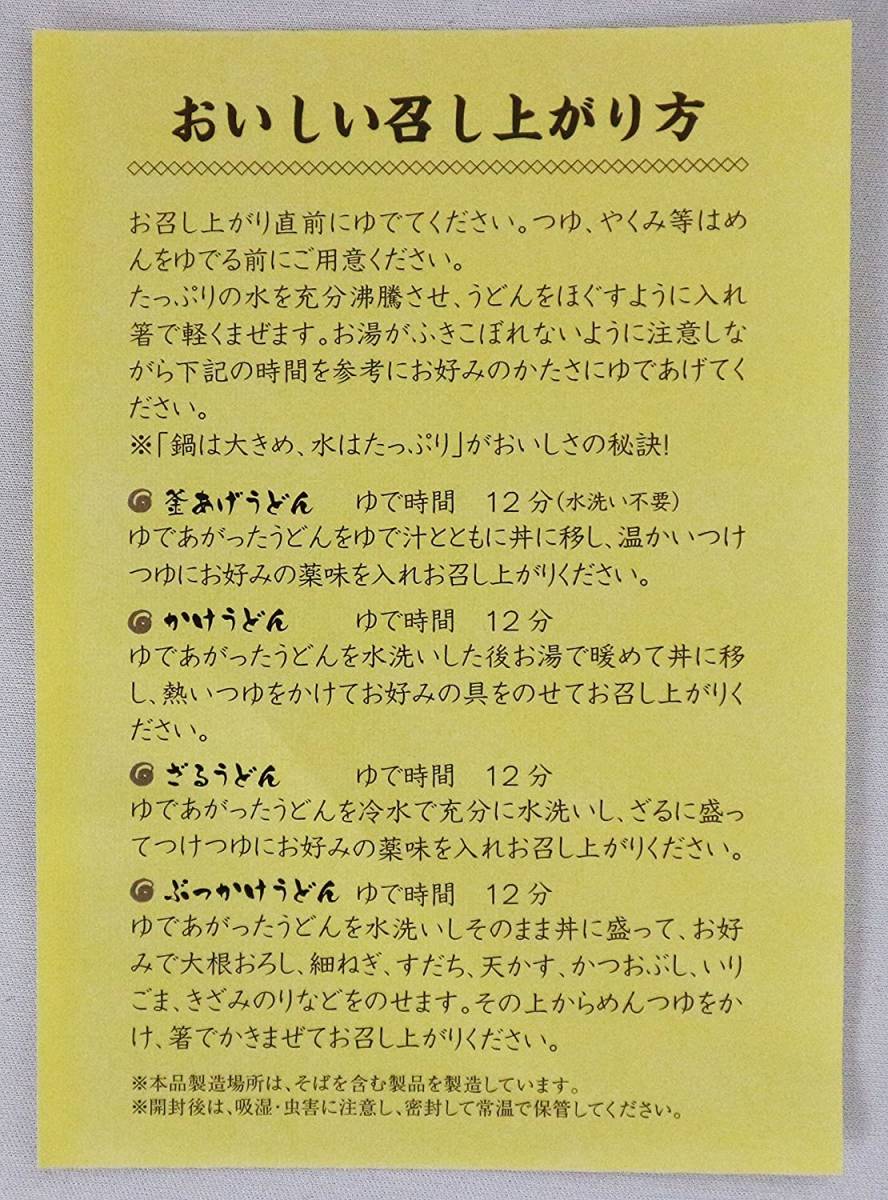 おいしい召し上がり方
お召し上がり直前にゆでてください。つゆ、やくみ等はめ
んをゆでる前にご用意ください。
たっぷりの水を充分沸騰させ、うどんをほぐすように入れ
箸で軽くまぜます。お湯がふきこぼれないように注意しな
がら下記の時間を参考にお好みのかたさにゆであげてく
ださい。
※「鍋は大きめ、水はたっぷり」がおいしさの秘訣!
釜あげうどん ゆで時間 12分(水洗い不要)
ゆであがったうどんをゆで汁とともに丼に移し、温かいつけ
つゆにお好みの薬味を入れお召し上がりください。
かけうどん ゆで時間 12分
ゆであがったうどんを水洗いした後お湯で暖めて丼に移
し、熱いつゆをかけてお好みの具をのせてお召し上がりく
ださい。
ざるうどん ゆで時間 12分
ゆであがったうどんを冷水で充分に水洗いし、ざるに盛っ
てつけつゆにお好みの薬味を入れお召し上がりください。
ぶっかけうどん ゆで時間 12分
ゆであがったうどんを水洗いしそのまま丼に盛って、お好
みで大根おろし、細ねぎ、すだち、天かす、かつおぶし、いり
ごま、きざみのりなどをのせます。その上からめんつゆをか
け、箸でかきまぜてお召し上がりください。
※本品製造場所は、そばを含む製品を製造しています。
※開封後は、吸湿・虫害に注意し、密封して常温で保管してください。